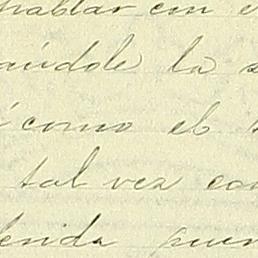 hablar con e
ándole la s
como el
tal vez con
enida puer